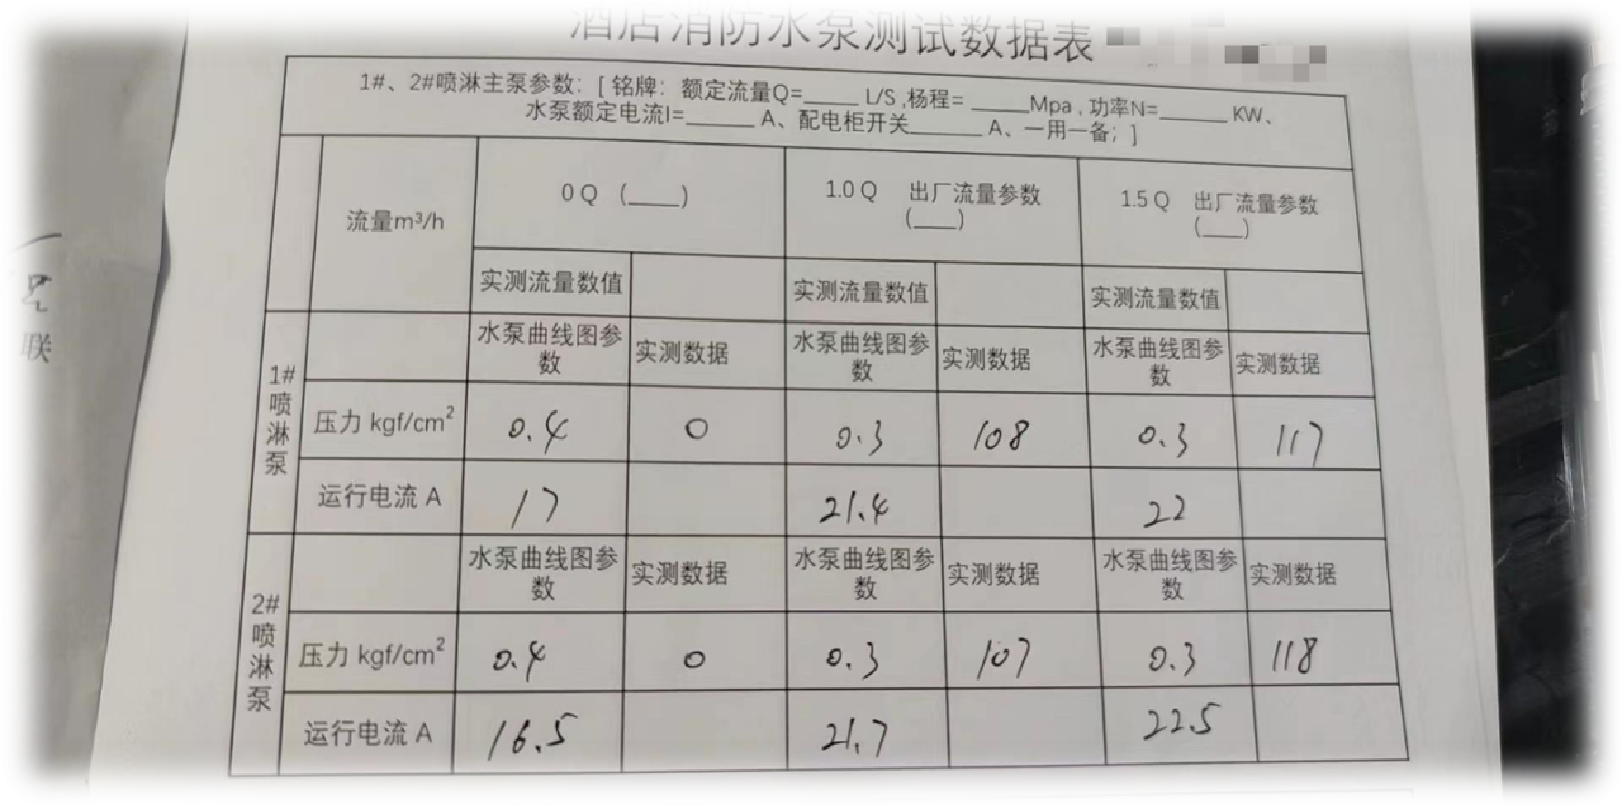 酒店消防水泵测试数据表
1#、2#喷淋主泵参数：[ 铭牌：额定流量Q=____ L/S ,杨程= ____Mpa , 功率N=_____ KW、
水泵额定电流I=_____ A、配电柜开关_____ A、一用一备；]
流量m³/h
0 Q （____）
1.0 Q 出厂流量参数
（___）
1.5 Q 出厂流量参数
（___）
实测流量数值
实测流量数值
实测流量数值
1#喷淋泵
水泵曲线图参
数
实测数据
水泵曲线图参
数
实测数据
水泵曲线图参
数
实测数据
压力 kgf/cm² 0.4 0 0.3 108 0.3 117
运行电流 A 17 21.4 22
2#喷淋泵
水泵曲线图参
数
实测数据
水泵曲线图参
数
实测数据
水泵曲线图参
数
实测数据
压力 kgf/cm² 0.4 0 0.3 107 0.3 118
运行电流 A 16.5 21.7 22.5
联